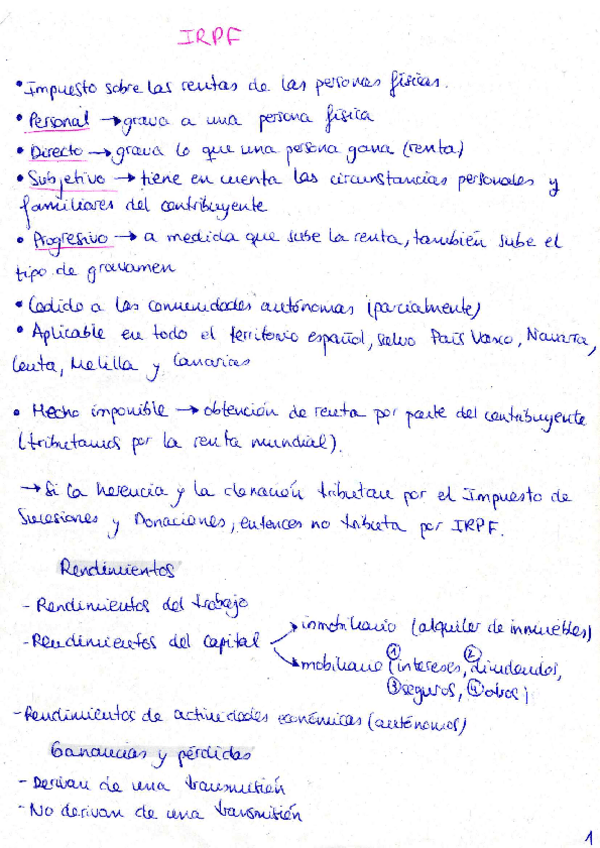 IRPF
• Impuesto sobre las rentas de las personas físicas.
• Personal → grava a una persona física
• Directo → grava lo que una persona gana (renta)
• Subjetivo → tiene en cuenta las circunstancias personales y
familiares del contribuyente
• Progresivo → a medida que sube la renta, también sube el
tipo de gravamen
• Cedido a las comunidades autónomas (parcialmente)
• Aplicable en todo el territorio español, salvo País Vasco, Navarra,
Ceuta, Melilla y Canarias
• Hecho imponible → obtención de renta por parte del contribuyente
(tributamos por la renta mundial).
→ Si la herencia y la donación tributan por el Impuesto de
Sucesiones y Donaciones, entonces no tributa por IRPF.
Rendimientos
- Rendimientos del trabajo
- Rendimientos del capital → inmobiliario (alquiler de inmuebles)
→ mobiliario (① intereses, ② dividendos,
③ seguros, ④ otros)
- Rendimientos de actividades económicas (autónomos)
Ganancias y pérdidas
- Derivan de una transmisión
- No derivan de una transmisión
1